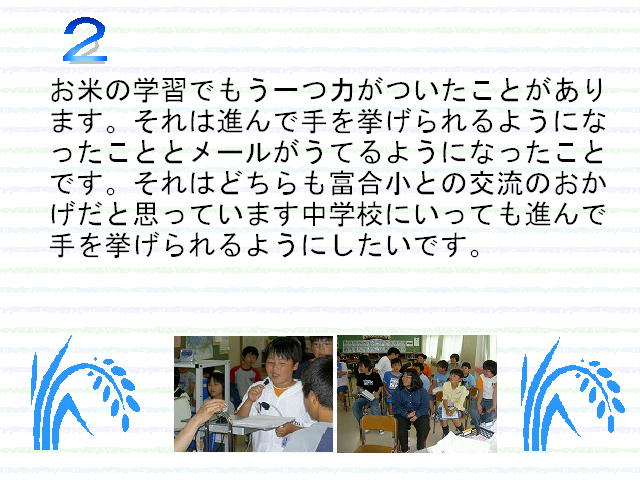 2
お米の学習でもう一つ力がついたことがあり
ます。それは進んで手を挙げられるようにな
ったこととメールがうてるようになったこと
です。それはどちらも富合小との交流のおか
げだと思っています中学校にいっても進んで
手を挙げられるようにしたいです。